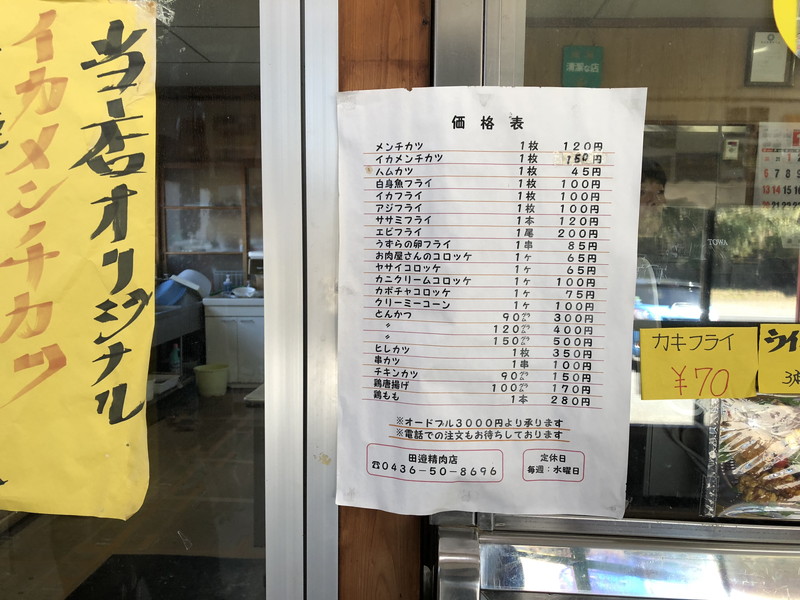 当店オリジナル
イカメンチカツ
清潔な店
価格表
メンチカツ 1枚 120円
イカメンチカツ 1枚 150円
ハムカツ 1枚 45円
白身魚フライ 1枚 100円
イカフライ 1枚 100円
アジフライ 1枚 100円
ササミフライ 1本 120円
エビフライ 1尾 200円
うずらの卵フライ 1串 85円
お肉屋さんのコロッケ 1ヶ 65円
ヤサイコロッケ 1ヶ 65円
カニクリームコロッケ 1ヶ 100円
カボチャコロッケ 1ヶ 75円
クリーミーコーン 1ヶ 100円
とんかつ 90㌘ 300円
〃 120㌘ 400円
〃 150㌘ 500円
ヒレカツ 1枚 350円
串カツ 1串 100円
チキンカツ 90㌘ 150円
鶏唐揚げ 100㌘ 170円
鶏もも 1本 280円
※オードブル3000円より承ります
※電話での注文もお待ちしております
田邉精肉店
☎0436-50-8696
定休日
毎週:水曜日
TOWA
カキフライ
¥70